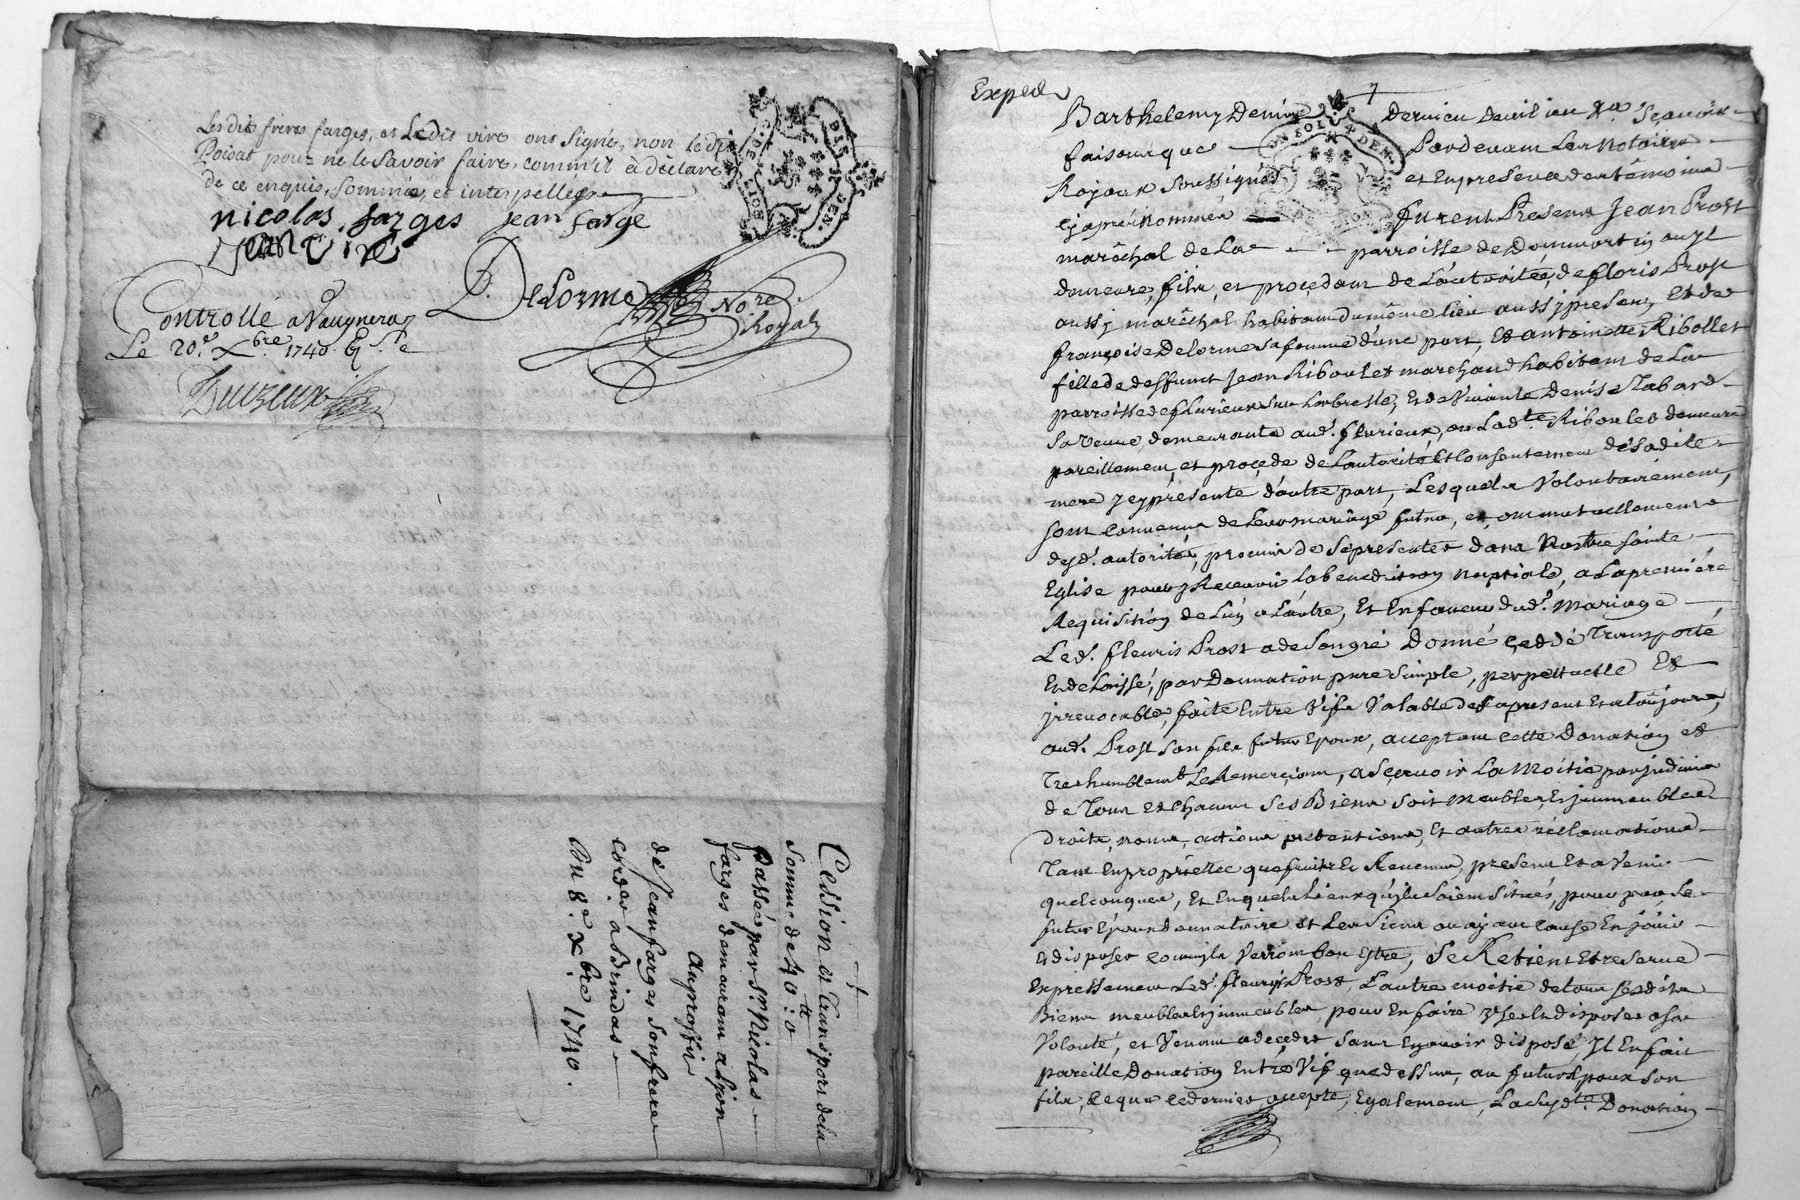 Lesdits freres farges, et Ledit vire ont Signé, non Ledit
Poisat pour ne le Savoir faire, comm'il à déclaré
de ce enquis, Sommée, et interpellées
nicolas farges jean farge
Jean vire
Delorme Nore. Royal
Controlle a Vaugneray
Le 20e. Xbre. 1740.
Cession et Transport dela
Somme de 40tt: 0
Passée par Sr. Nicolas
farges demeurant a Lyon
Au proffit
de Jean farges Son frere
cordr. a Brindas
Du 8e. Xbre 1740.
Exped.
7
Barthelemy Denis
faisons que Pardevant Les Notaires
Royaux Soussignés et En presence des témoins
cy aprés Nommés furent Presens Jean Prost
maréchal de La parroisse de Dommartin ou Jl
demeure, fils, et procedant de L'autoritée, de floris Prost
aussy maréchal habitant du même lieu aussy present, Et de
françoise Delorme Sa femme d'une part, Et antoinette Ribollet
fille de deffunt Jean Riboulet marchand habitant de La
parroisse de fleurieux Sur Larbresle, Et de Vivante Denise Tabard
Sa Veuve, demeurante aud. fleurieux, ou Ladte. Riboulet demeure
pareillement, et procede de L'autorité Et Consentement de Sadite
mere Jcy présente d'autre part, Lesquels Volontairement,
Sont Convenus de Leur mariage futur, et, ont mutuellement
desd. autorités, promis de Se presenter dans Nostre Sainte
Eglise pour y Recevoir La benediction nuptiale, a La premiére
Requisition de L'un a L'autre, Et En faveur dud. Mariage
Led. fleuris Prost a de Son gré Donné Ceddé Transporté
Et delaissé, par Donnation pure Simple, perpettuelle Et
jrrevocable, faite Entre Vifs Valable des a present Et a toûjours,
aud. Prost Son fils futur Epoux, acceptant cette Donation et
Tres humblemt. Le Remerçiant, a Sçavoir La Moitié par jndivis
de Tous et Chacuns Ses Biens Soit Meubles Et jmmeubles
droits, noms, actions pretentions, Et autres réclamations
Tant En proprieté que fruits Et Revenus, presens Et a Venir
quelconques, Et En quels Lieux qu'ils Soient Situés, pour par Le
futur Epoux donnataire Et Les Siens ou ayant cause En joüir
Et disposer comm'ils Verront bon Estre, Se Retient Et reserve
Expressement Led. fleuris Prost, L'autre moitié de tous Sesdits
Biens meubles Et jmmeubles, pour En faire Et disposer a Sa
Volonté, et Venant a deceder Sans En avoir disposé, Jl En fait
pareille Donation Entre Vifs que dessus, au futur Epoux Son
fils, Ce que Ce dernier accepte, Egalement, La Susdte. Donation